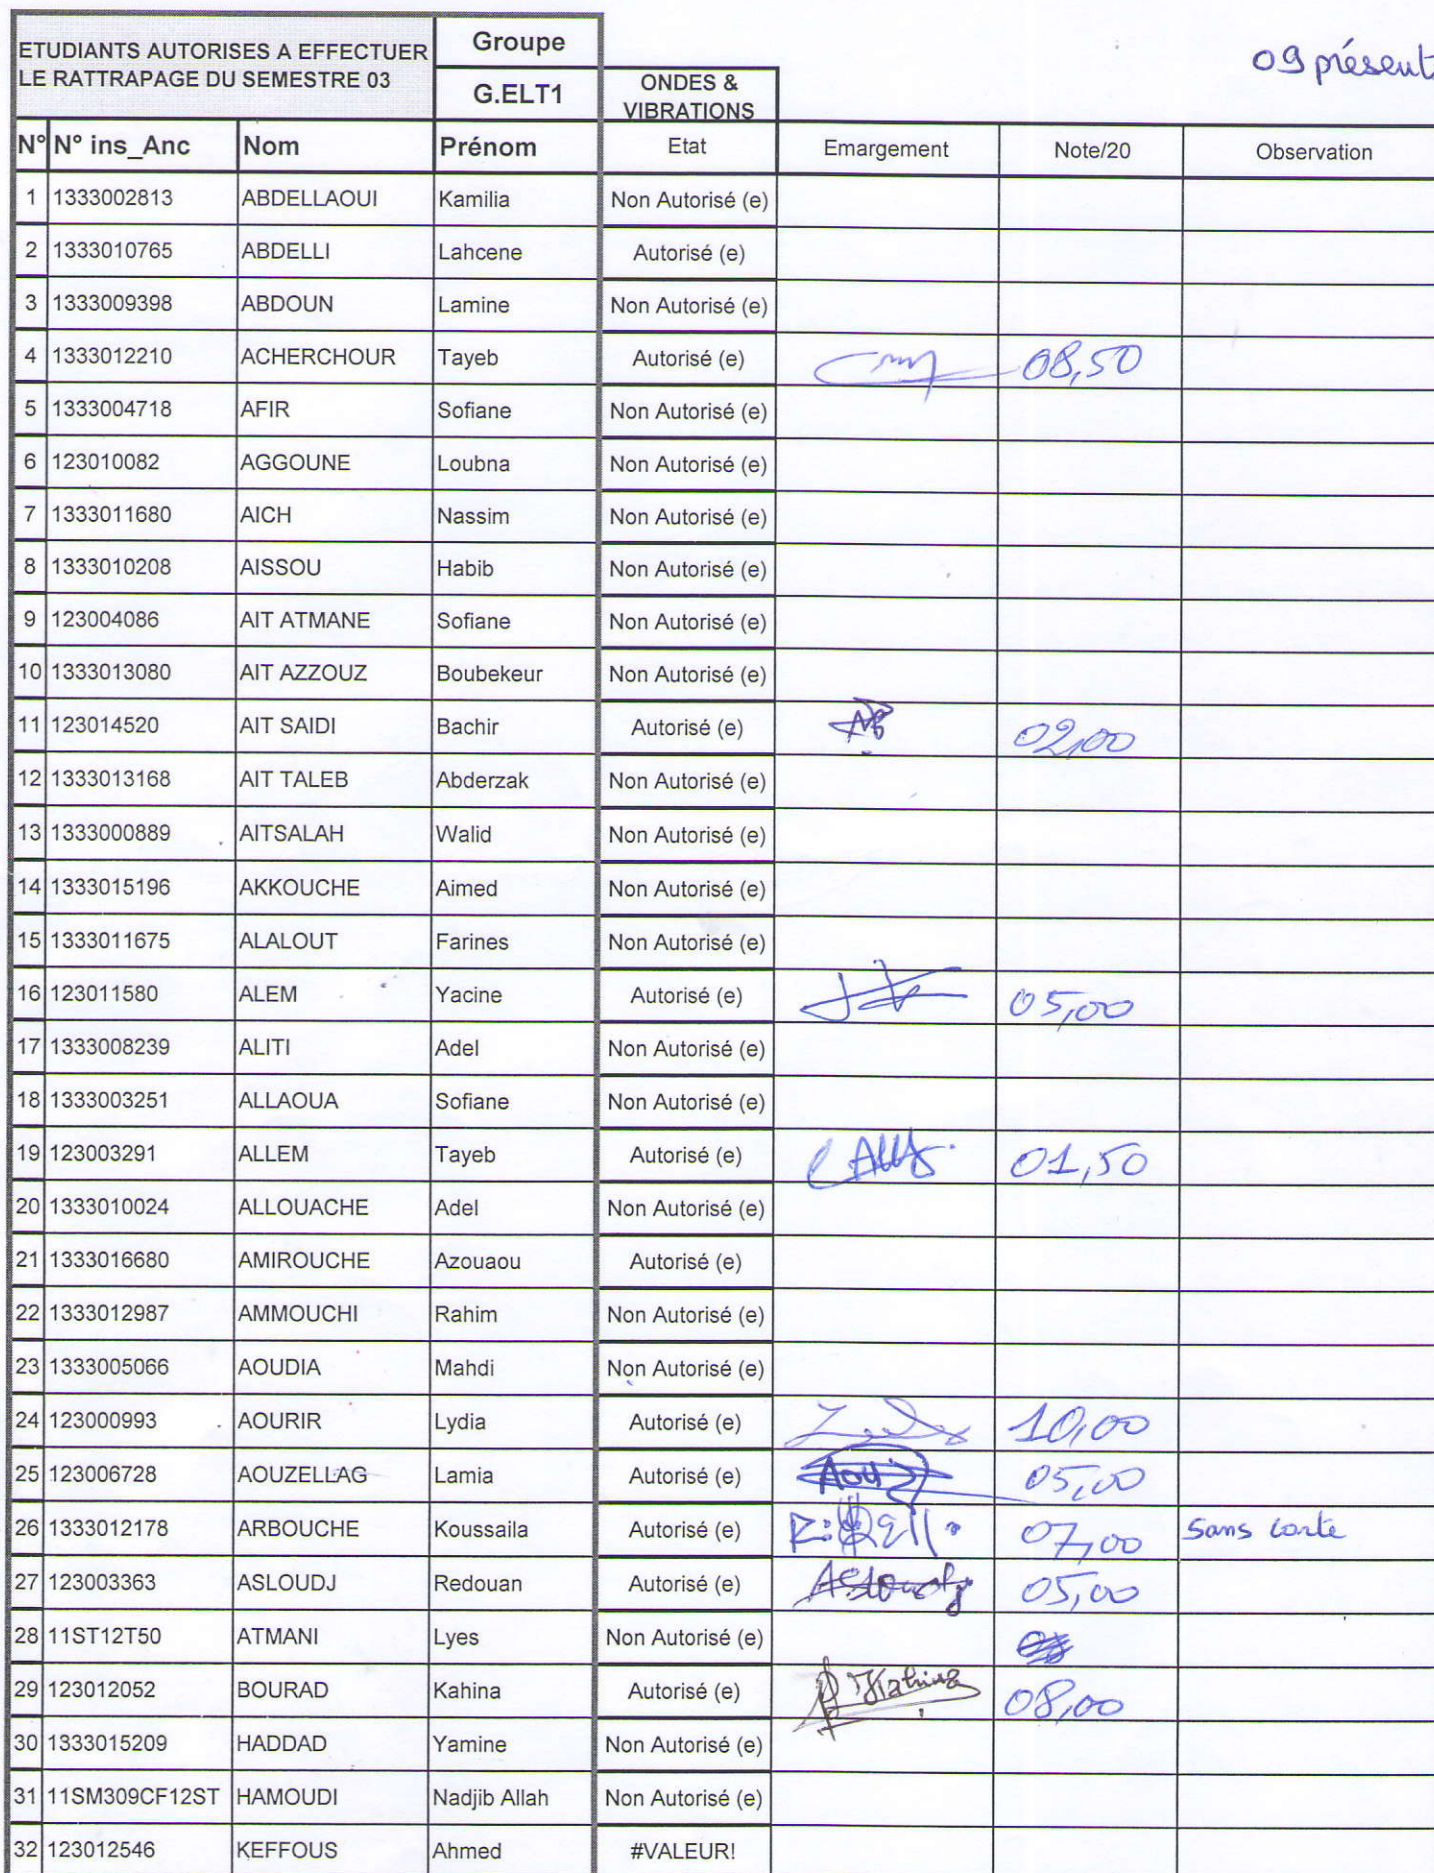 ETUDIANTS AUTORISES A EFFECTUER LE RATTRAPAGE DU SEMESTRE 03
Groupe
G.ELT1
ONDES & VIBRATIONS
09 présents
N° N° ins_Anc Nom Prénom Etat Emargement Note/20 Observation
1 1333002813 ABDELLAOUI Kamilia Non Autorisé (e)
2 1333010765 ABDELLI Lahcene Autorisé (e)
3 1333009398 ABDOUN Lamine Non Autorisé (e)
4 1333012210 ACHERCHOUR Tayeb Autorisé (e) 08,50
5 1333004718 AFIR Sofiane Non Autorisé (e)
6 123010082 AGGOUNE Loubna Non Autorisé (e)
7 1333011680 AICH Nassim Non Autorisé (e)
8 1333010208 AISSOU Habib Non Autorisé (e)
9 123004086 AIT ATMANE Sofiane Non Autorisé (e)
10 1333013080 AIT AZZOUZ Boubekeur Non Autorisé (e)
11 123014520 AIT SAIDI Bachir Autorisé (e) 02,00
12 1333013168 AIT TALEB Abderzak Non Autorisé (e)
13 1333000889 AITSALAH Walid Non Autorisé (e)
14 1333015196 AKKOUCHE Aimed Non Autorisé (e)
15 1333011675 ALALOUT Farines Non Autorisé (e)
16 123011580 ALEM Yacine Autorisé (e) 05,00
17 1333008239 ALITI Adel Non Autorisé (e)
18 1333003251 ALLAOUA Sofiane Non Autorisé (e)
19 123003291 ALLEM Tayeb Autorisé (e) 01,50
20 1333010024 ALLOUACHE Adel Non Autorisé (e)
21 1333016680 AMIROUCHE Azouaou Autorisé (e)
22 1333012987 AMMOUCHI Rahim Non Autorisé (e)
23 1333005066 AOUDIA Mahdi Non Autorisé (e)
24 123000993 AOURIR Lydia Autorisé (e) 10,00
25 123006728 AOUZELLAG Lamia Autorisé (e) 05,00
26 1333012178 ARBOUCHE Koussaila Autorisé (e) 07,00 Sans carte
27 123003363 ASLOUDJ Redouan Autorisé (e) 05,00
28 11ST12T50 ATMANI Lyes Non Autorisé (e)
29 123012052 BOURAD Kahina Autorisé (e) Kahina 08,00
30 1333015209 HADDAD Yamine Non Autorisé (e)
31 11SM309CF12ST HAMOUDI Nadjib Allah Non Autorisé (e)
32 123012546 KEFFOUS Ahmed #VALEUR!